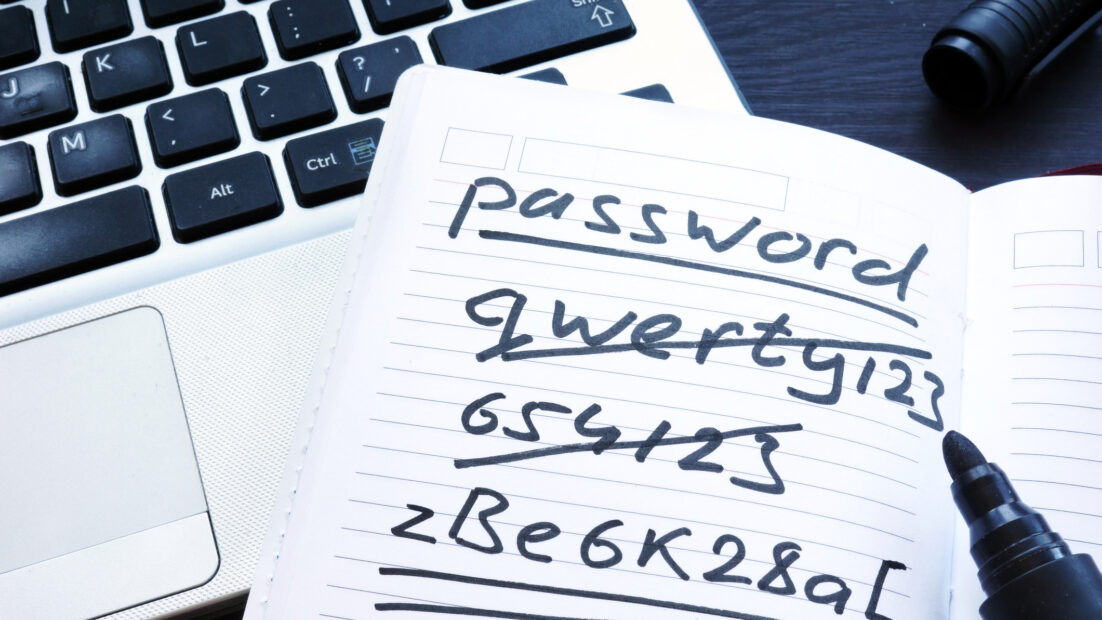 Sh
L
:
;
K
?
/
J
>
.
<
,
M
Ctrl
Alt
password
qwerty123
654123
zBe6K28a[